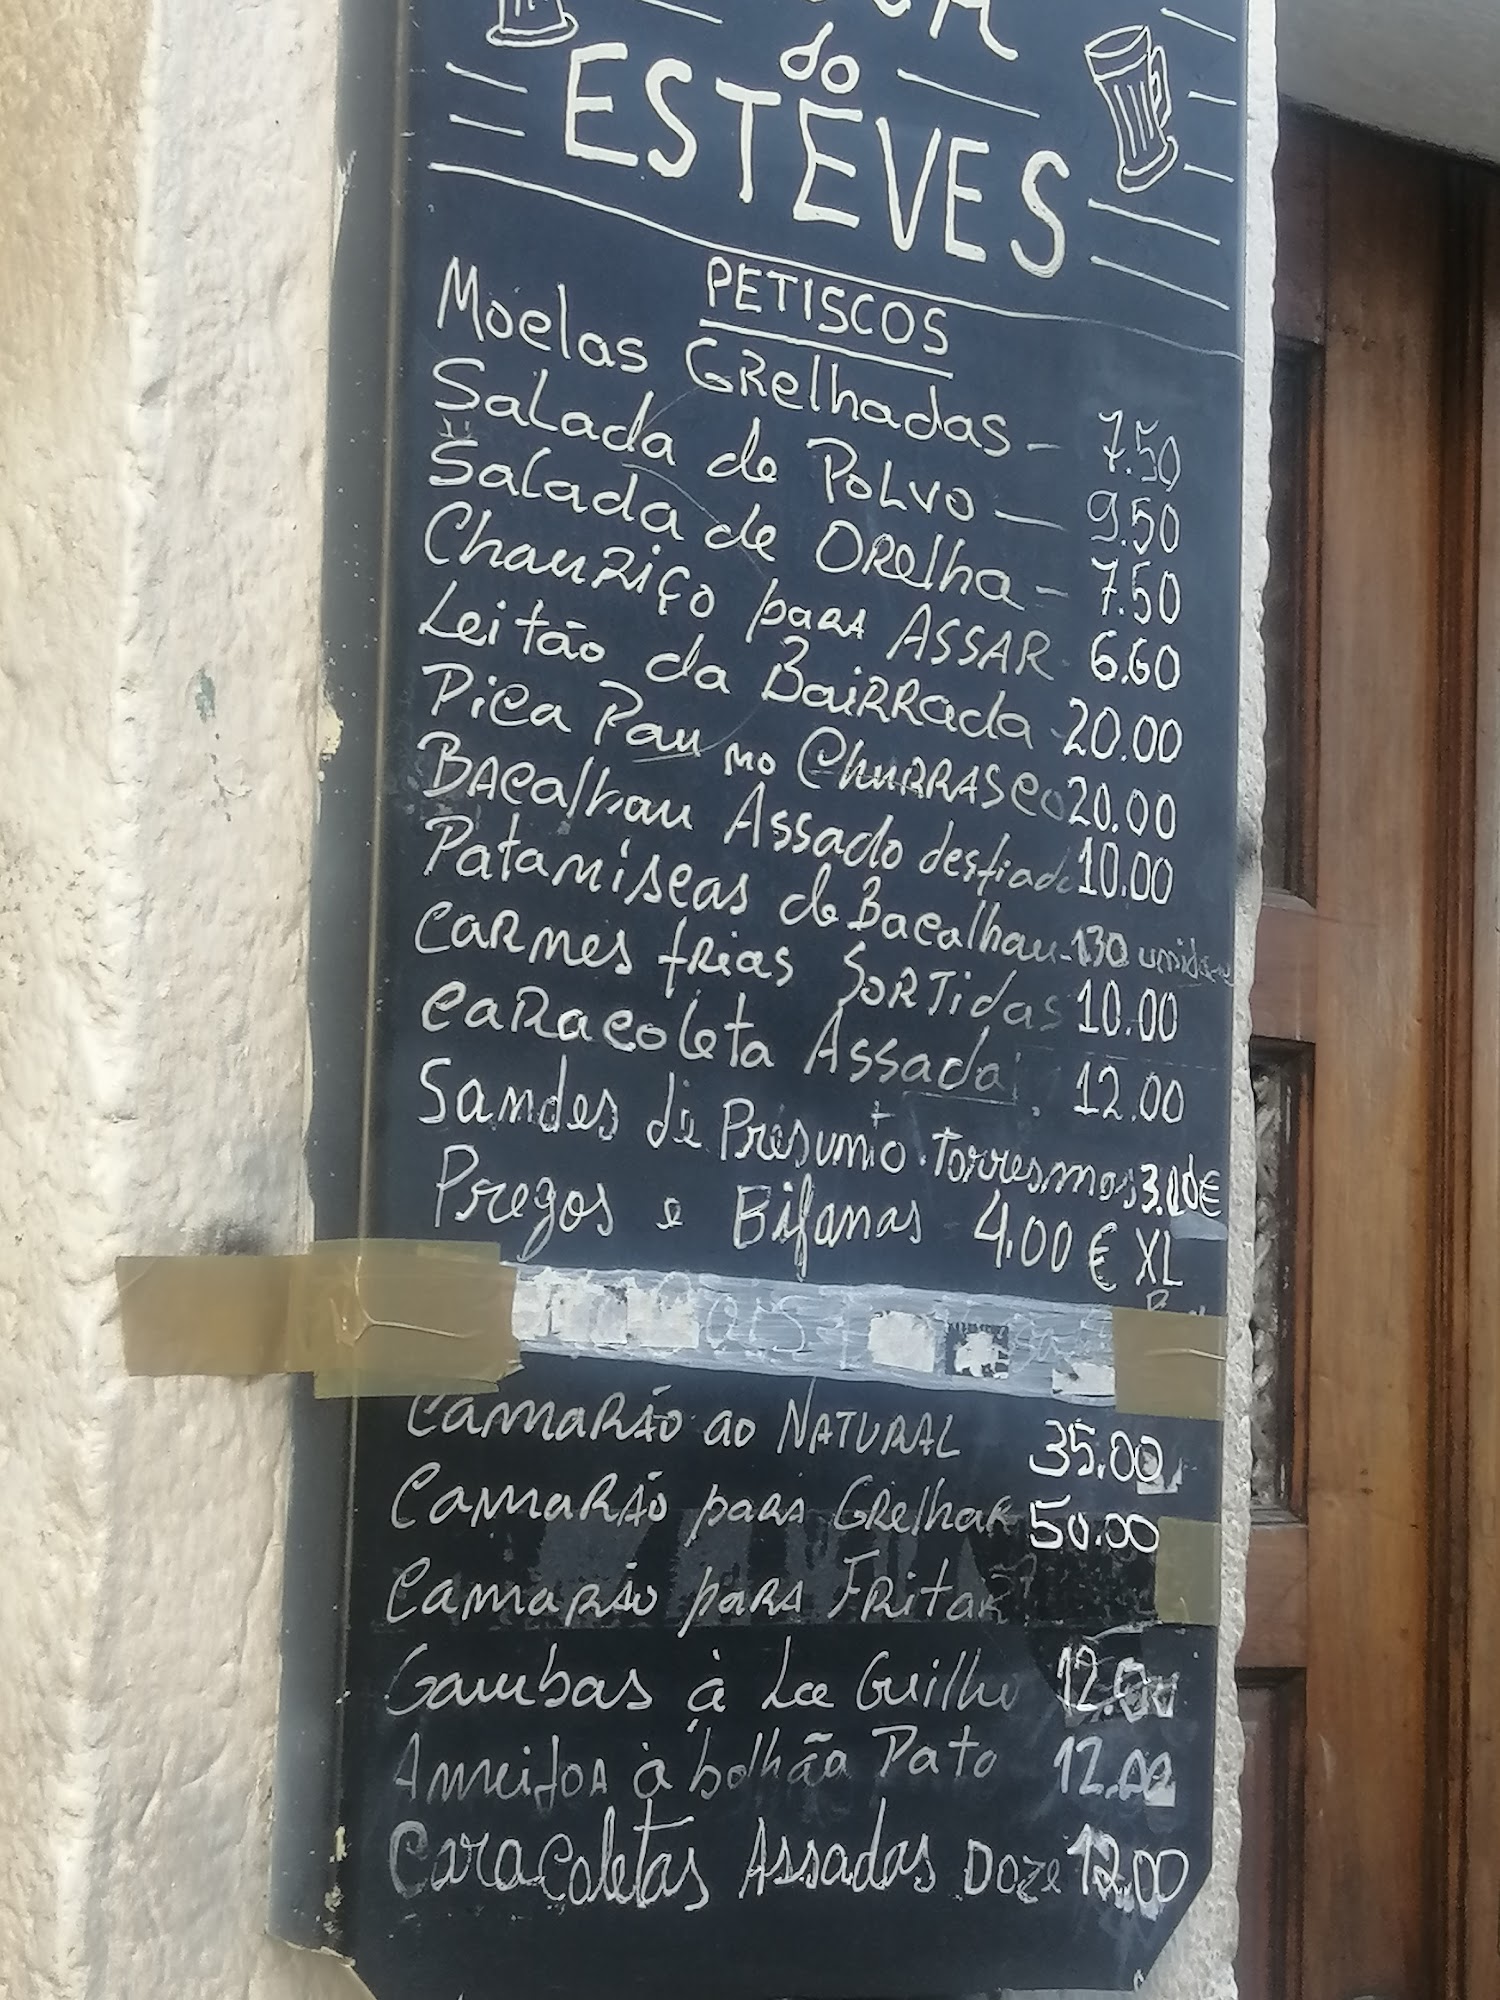 do
ESTEVES
PETISCOS
Moelas GRelhadas - 7.50
Salada de PoLvo - 9.50
Salada de ORelha - 7.50
ChauRiço paRA ASSAR 6.60
Leitão da BaiRRada 20.00
Pica Pau no ChuRRASco 20.00
BAcalhau Assado desfiado 10.00
Pataniscas de Bacalhau - 1.30 unidade
CARnes fRias SoRTidas 10.00
CaRacoleta Assada 12.00
Sandes de Presunto . Torresmos 3.10€
Pregos e Bifanas 4.00 € XL
CamaRão ao NATURAL 35.00
CamaRão paRA GRelhaR 50.00
CamaRão paRA FRitaR
Gambas à La Guilho 12.00
Ameijoa à bolhão Pato 12.00
Caracoletas Assadas Doze 12.00